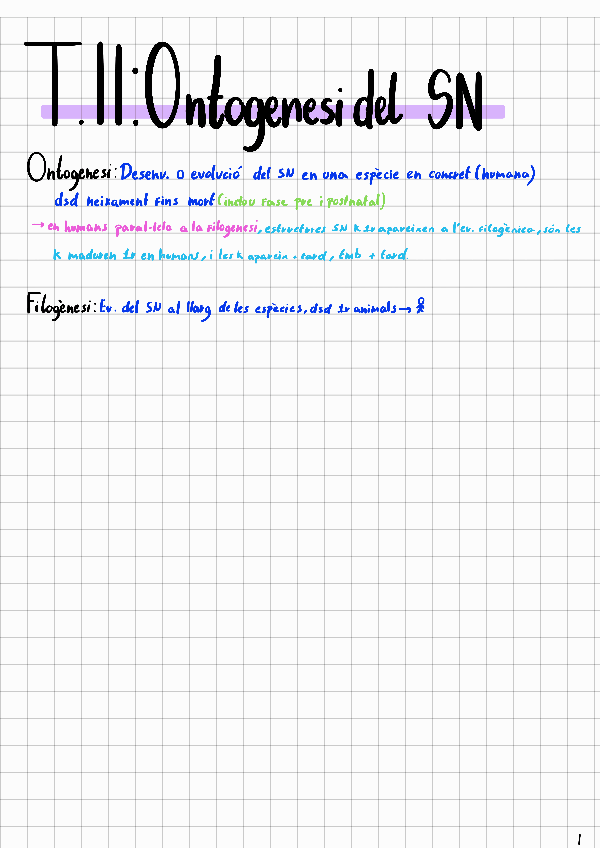 T.11: Ontogenesi del SN
Ontogenesi: Desenv. o evolució del SN en una espècie en concret (humana)
dsd neixament fins mort (inclou fase pre i postnatal)
→ en humans paral·lela a la filogenesi, estructures SN k 1r apareixen a l'ev. filogènica, són les
k maduren 1r en humans, i les k apareixn + tard, tmb + tard.
Filogènesi: Ev. del SN al llarg de les espècies, dsd 1r animals →
1